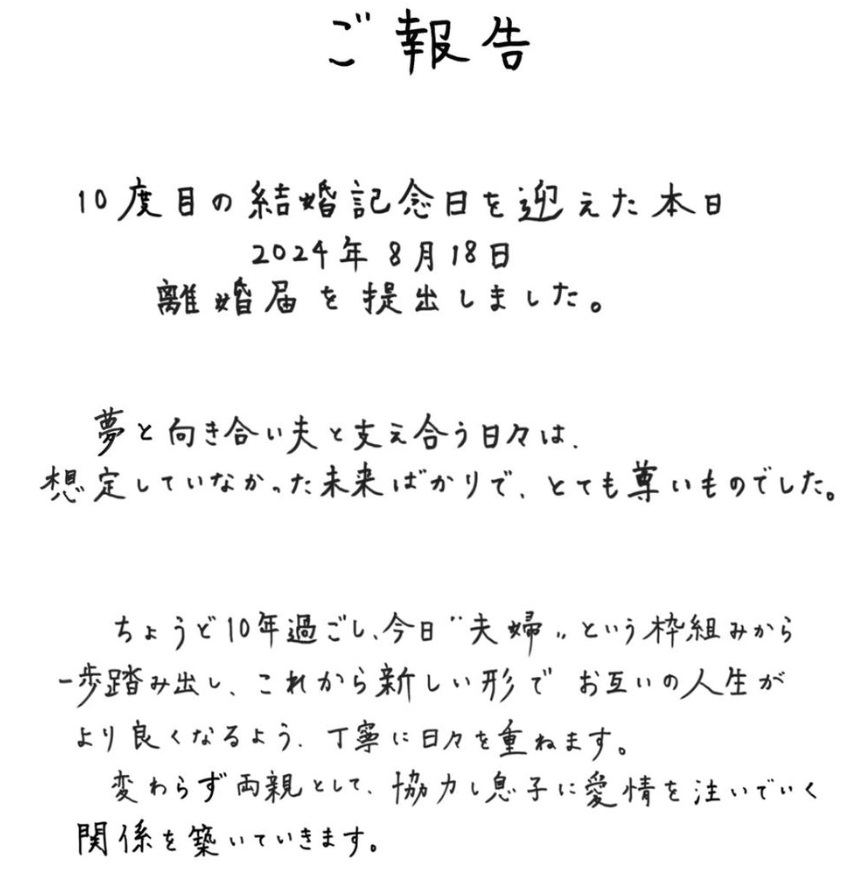 ご報告
10度目の結婚記念日を迎えた本日
2024年8月18日
離婚届を提出しました。
夢と向き合い夫と支え合う日々は、
想定していなかった未来ばかりで、とても尊いものでした。
ちょうど10年過ごし、今日〝夫婦〟という枠組みから
一歩踏み出し、これから新しい形で お互いの人生が
より良くなるよう、丁寧に日々を重ねます。
変わらず両親として、協力し息子に愛情を注いでいく
関係を築いていきます。